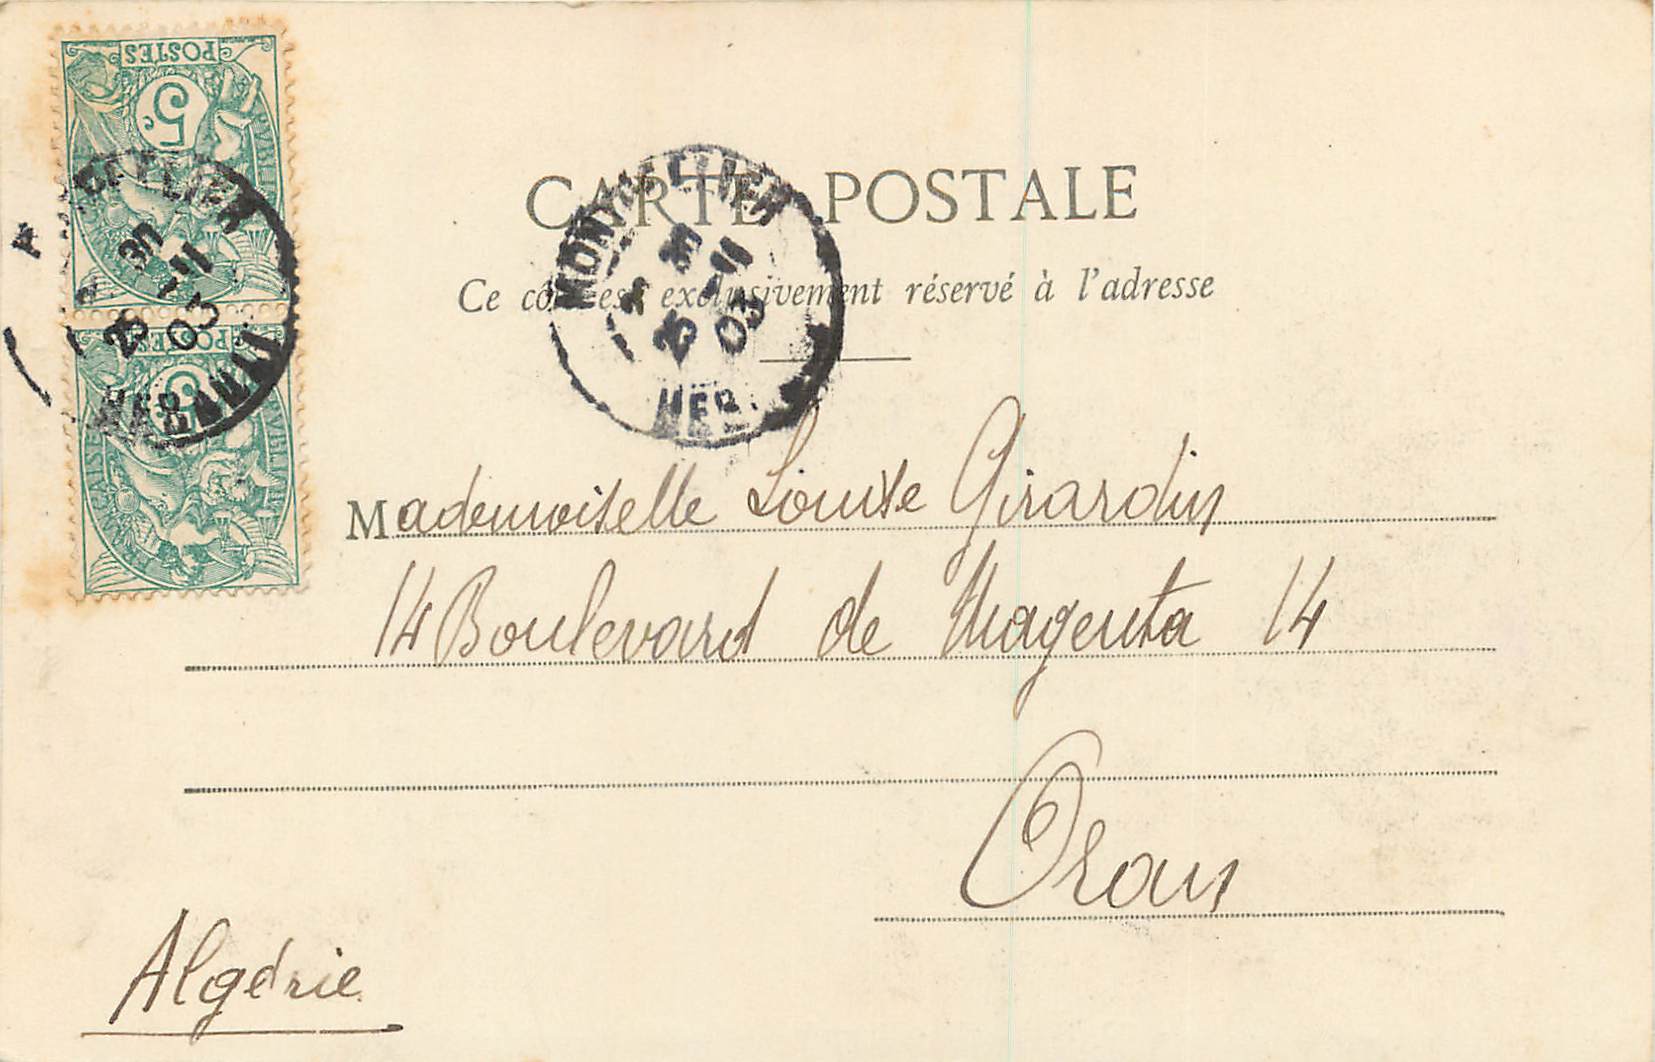 POSTES
5c
POSTES
5
CARTE POSTALE
Ce côté est exclusivement réservé à l'adresse
MONTPELLIER
25
03
HER
MONTPELLIER
25
03
HERAULT
Mademoiselle Louise Girardin
14 Boulevard de Magenta 14
Oran
Algérie